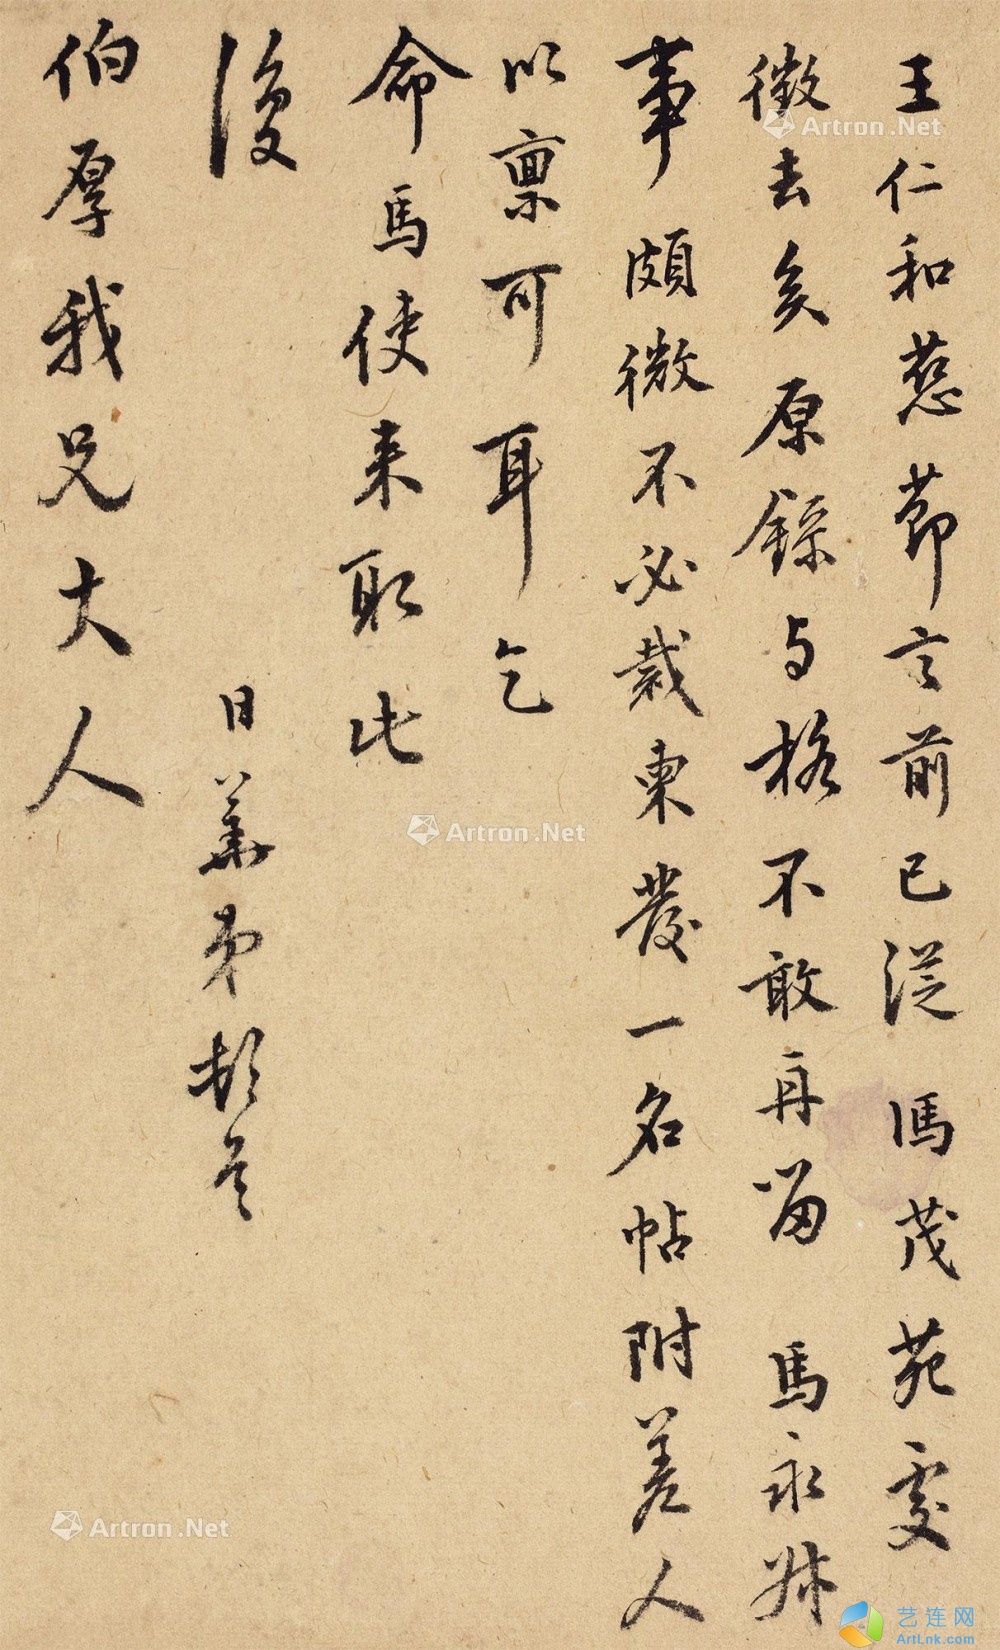 王仁和慈節言前已從馮茂苑處
徵去矣原錄与格不敢再留 馬永
事頗微不必裁柬發一名帖附差人
以稟可耳乞
命馬使来取此
復
日華弟頓首
伯厚我兄大人
Artron.Net
Artron.Net
Artron.Net
艺连网
ArtLnk.com